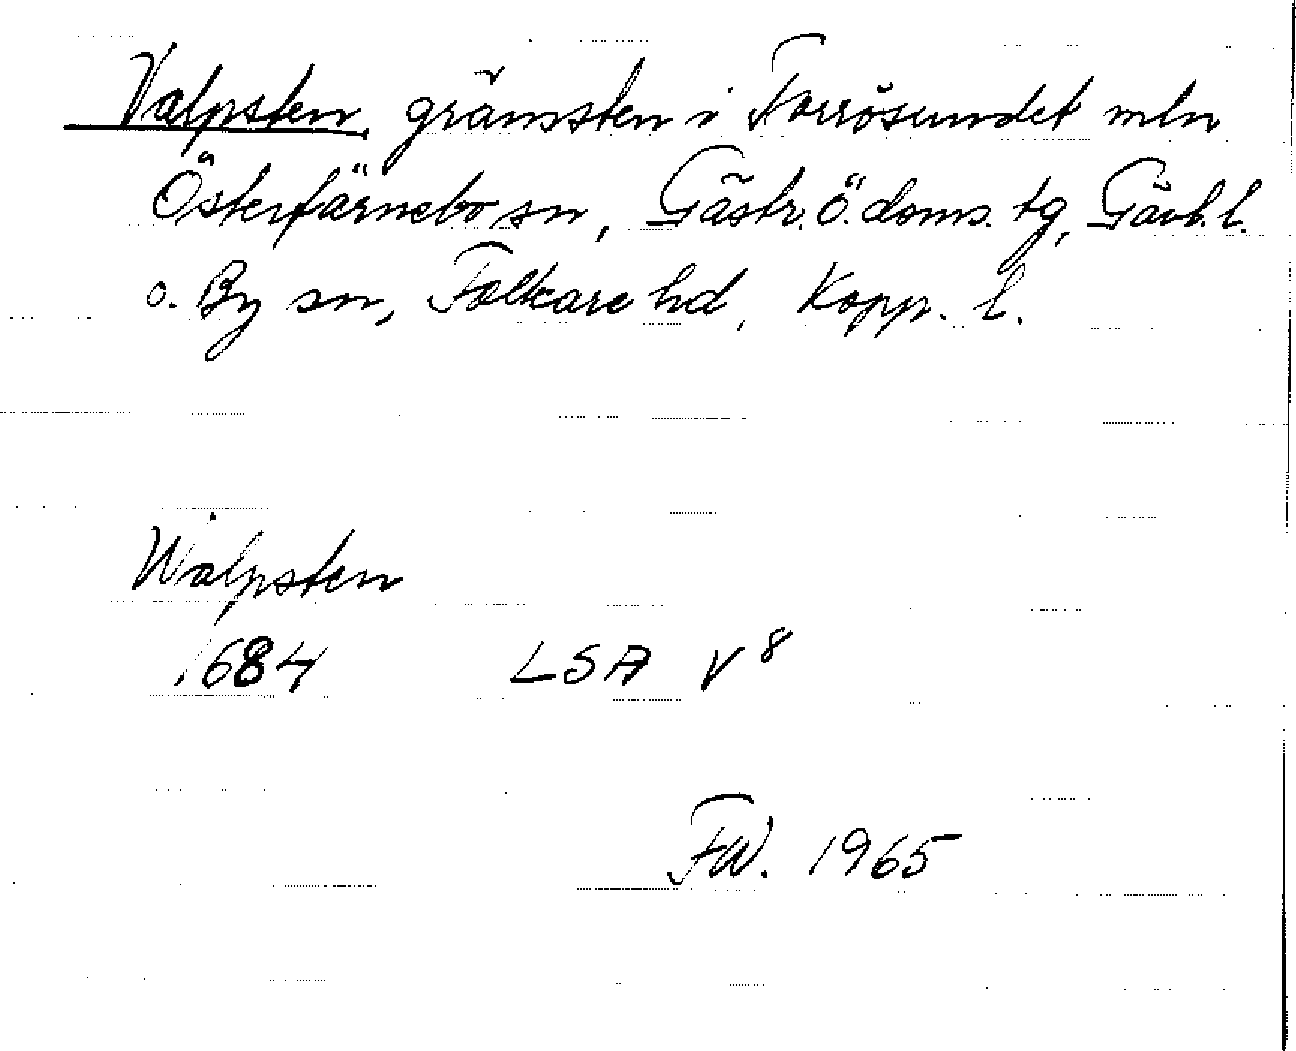 Valpsten, gränssten i Torrösundet mln
Österfärnebo sn, Gästr. Ö. doms. tg, Gävl. l.
o. By sn, Folkare hd, Kopp. l.
Walpsten
1684 LSA V 8
FW. 1965